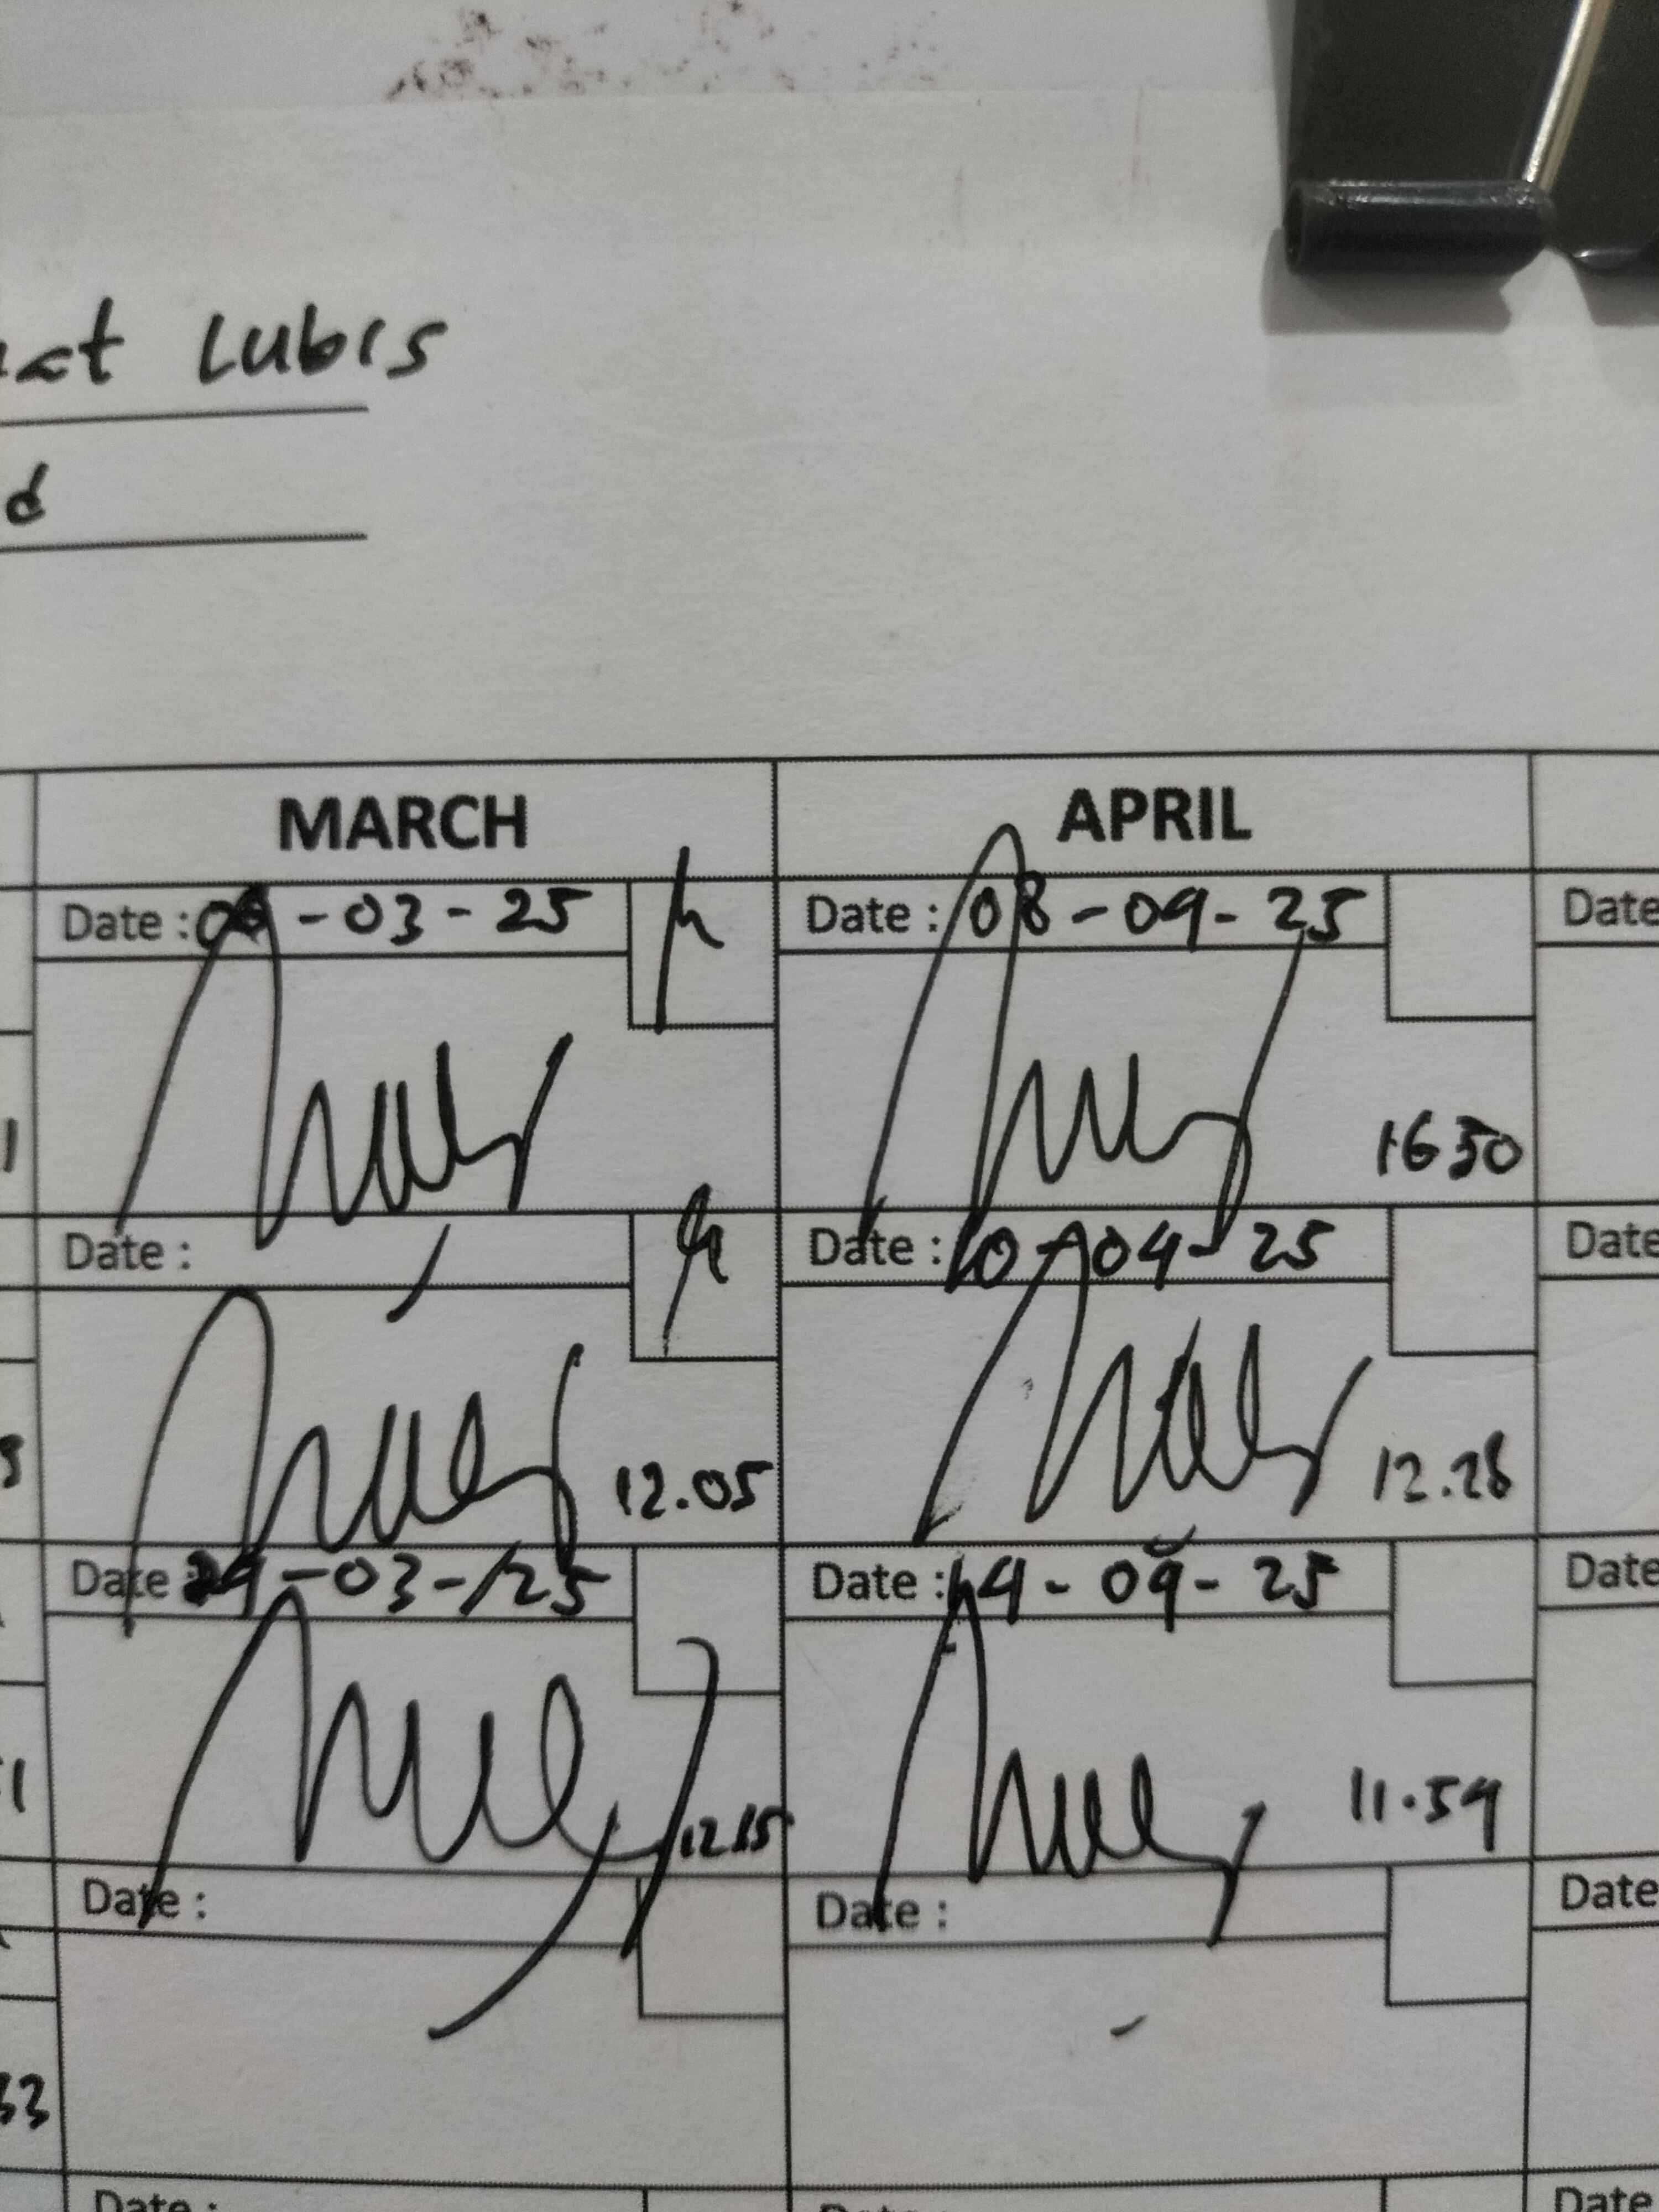 Lubis
d
MARCH APRIL
Date : -03-25 Date : 08-04-25 Date
1 16 30
Date : Date : 10-04-25 Date
12.05 12.28
Date 24-03-25 Date : 14-04-25 Date
1 12.15 11.54
Date : Date : Date
33
Date : Date